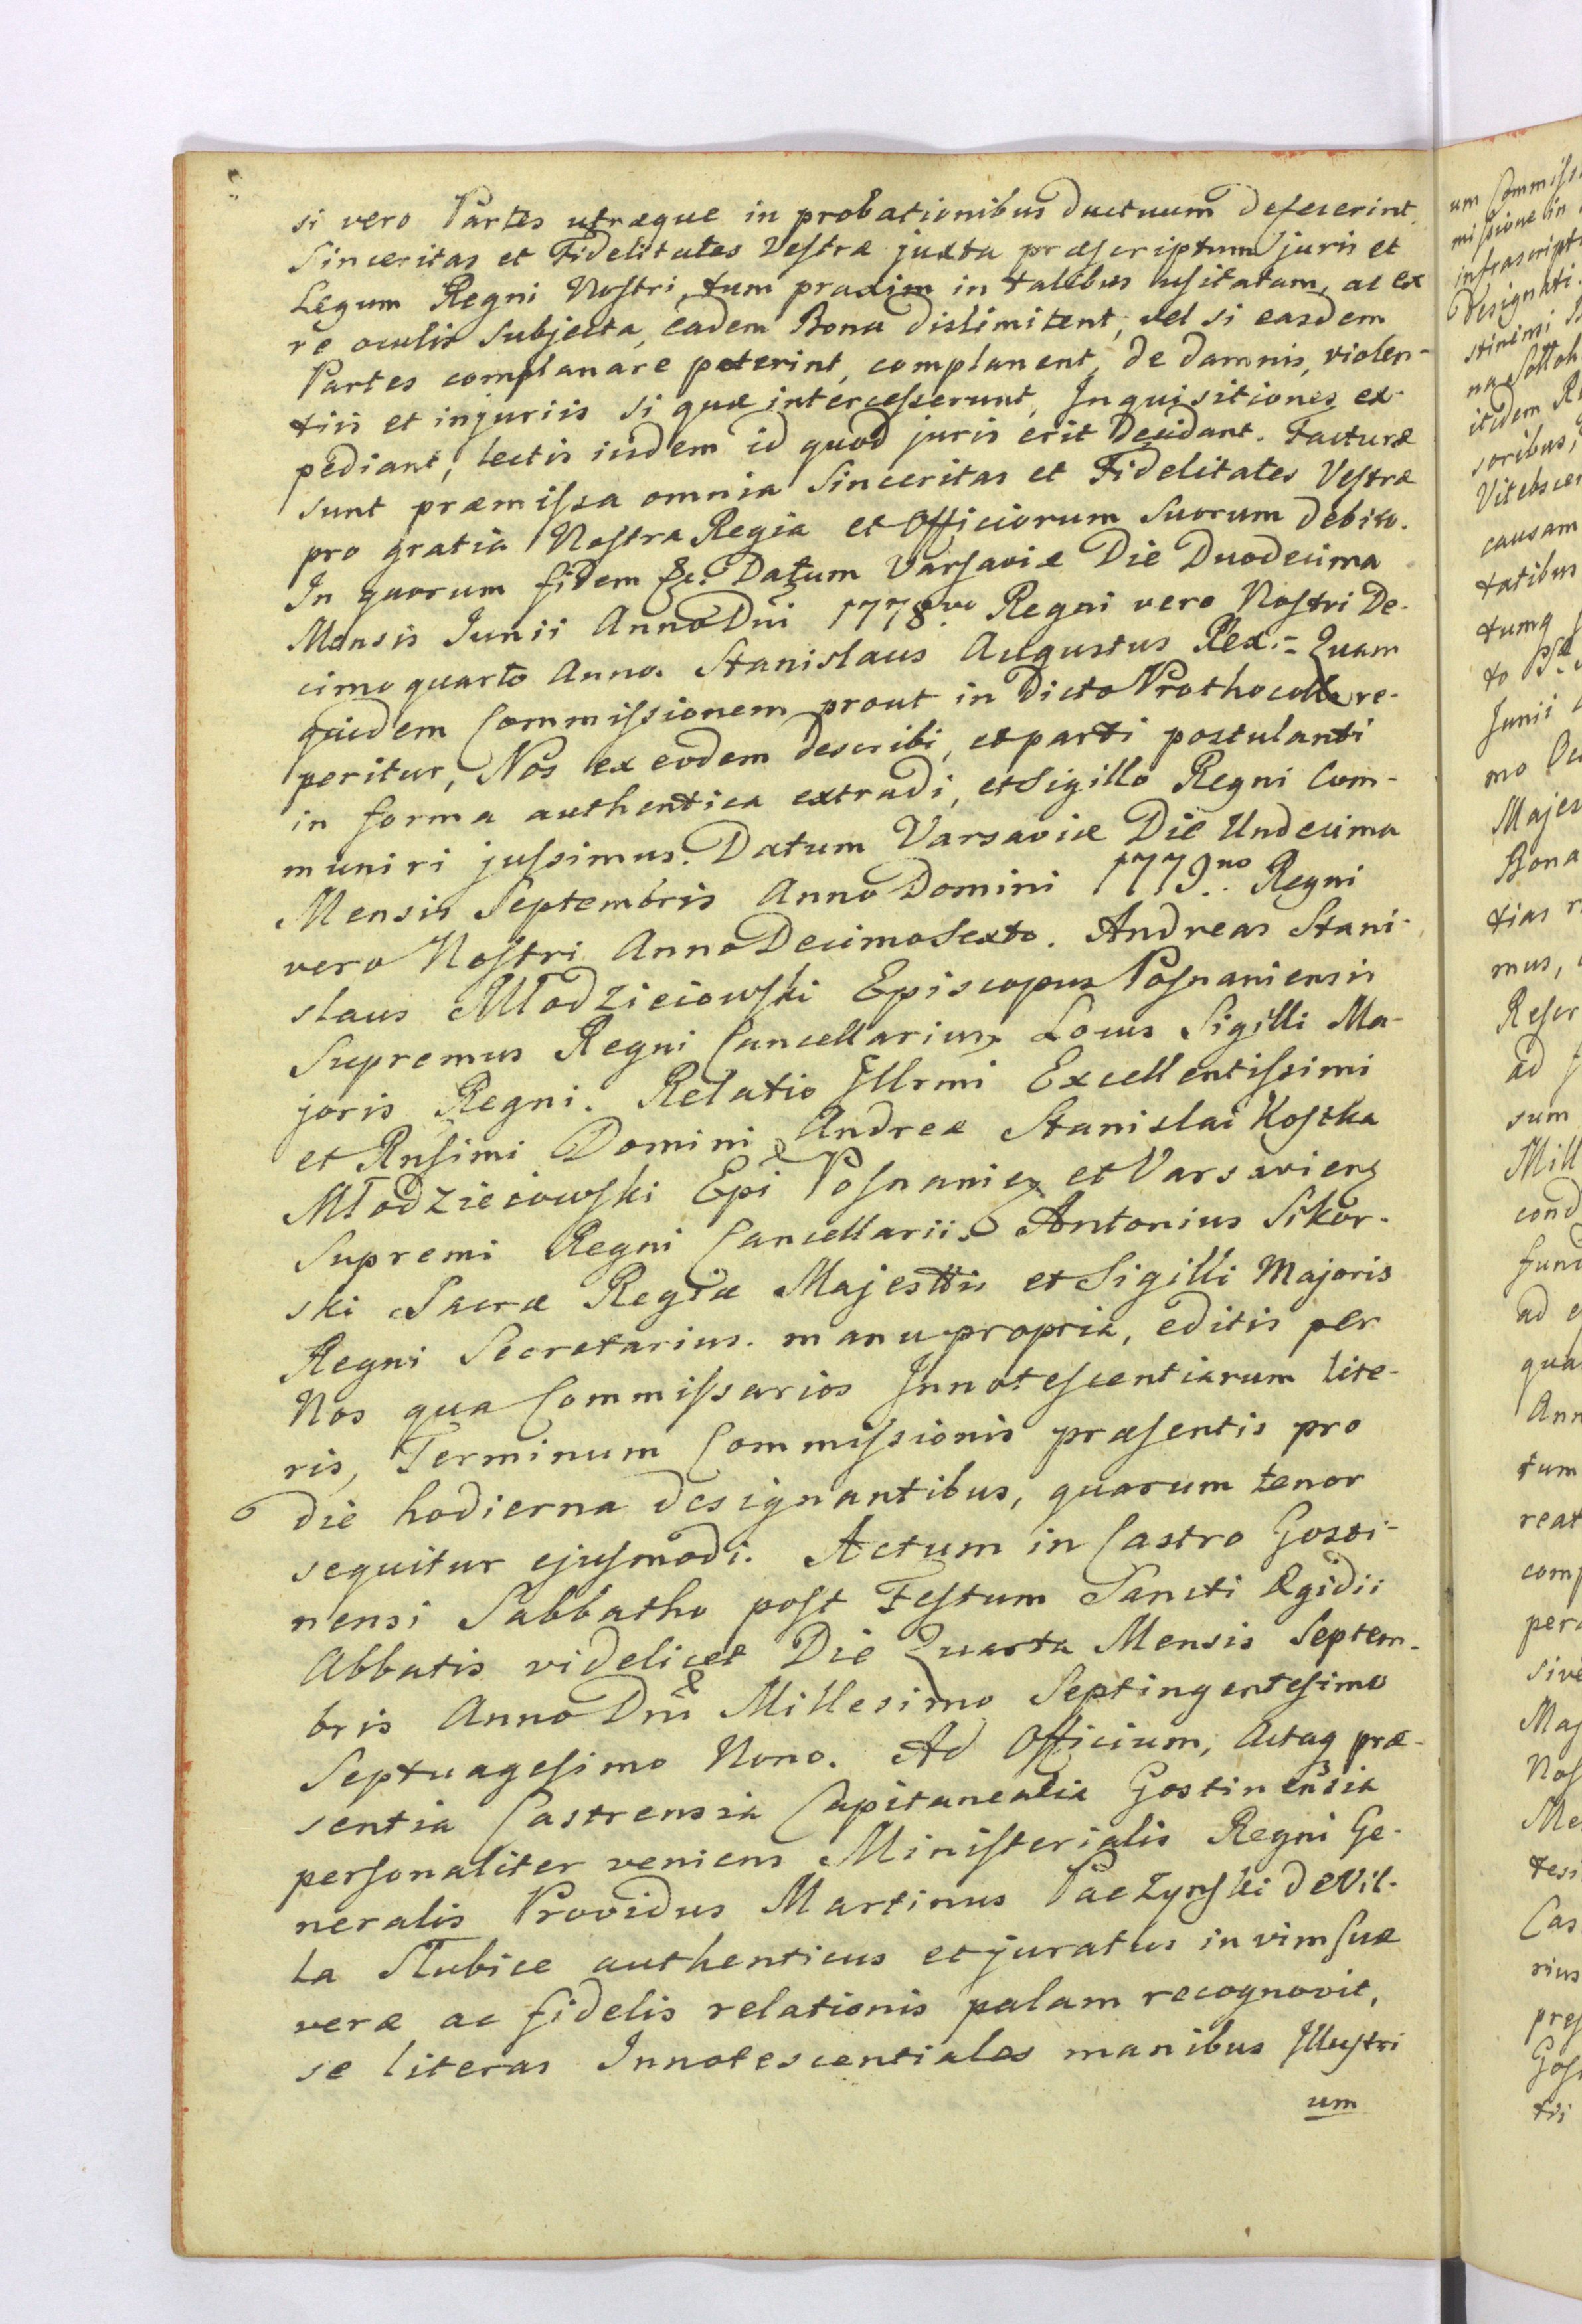 si vero Partes utræque in probationibus ductuum defecerint,
Sinceritas et Fidelitates Vestræ juxta præscriptum juris et
Legum Regni Nostri, tum praxim in talibus usitatam, ac ex
re oculis subjecta, eadem Bona dislimitent, vel si easdem
Partes complanare poterint, complanent, de damnis, violen-
tiis et injuriis si quæ intercesserunt, Inquisitiones ex-
pediant, lectis iisdem id quod juris erit decidant. Facturæ
sunt præmissa omnia Sinceritas et Fidelitates Vestræ
pro gratia Nostra Regia et Officiorum suorum debito.
In quorum fidem &c. Datum Varsaviæ Die Duodecima
Mensis Junii Anno Dni 1778vo Regni vero Nostri De-
cimo quarto Anno. Stanislaus Augustus Rex := Quam
quidem Commissionem prout in dicto Prothocollo re-
peritur, Nos ex eodem describi, et parti postulanti
in forma authentica extradi, et Sigillo Regni Com-
muniri jussimus. Datum Varsaviæ Die Undecima
Mensis Septembris Anno Domini 1779no Regni
vero Nostri Anno Decimo Sexto. Andreas Stani-
slaus Młodzieiowski Episcopus Posnaniensis
Supremus Regni Cancellarius Locus Sigilli Ma-
joris Regni. Relatio Illrmi Excellentissimi
et Rnsimi Domini Andreæ Stanislai Kostka
Młodzieiowski Epi Posnanien et Varsavien
Supremi Regni Cancellarii. Antonius Sikor-
ski Sacræ Regiæ Majesttis et Sigilli Majoris
Regni Secretarius. manu propria, editis per
Nos qua Commissarios Innotescentiarum lite-
ris, Terminum Commissionis præsentis pro
die hodierna designantibus, quarum tenor
sequitur ejusmodi. Actum in Castro Gosti-
nensi Sabbatho post Festum Sancti Ægidii
Abbatis videlicet Die Quarta Mensis Septem-
bris Anno Dni Millesimo Septingentesimo
Septuagesimo Nono. Ad Officium, Actaq præ-
sentia Castrensia Capitanealia Gostinensia
personaliter veniens Ministerialis Regni Ge-
neralis Providus Martinus Paczynski de Vil-
la Słubice authenticus et juratus in vim suæ
veræ ac fidelis relationis palam recognovit,
se literas Innotescentiales manibus Illustri
um
um Commiss
missione in
infrascript
designati.
itidem
soribus,
causam
tatibus
Junii
Majes
Bona
tias
mus,
Rescr
ad
sum
Mill
cond
fund
ad
qua
Ann
tum
reat
comp
sive
Maj
Nos
tesi
Cas
rius
pres